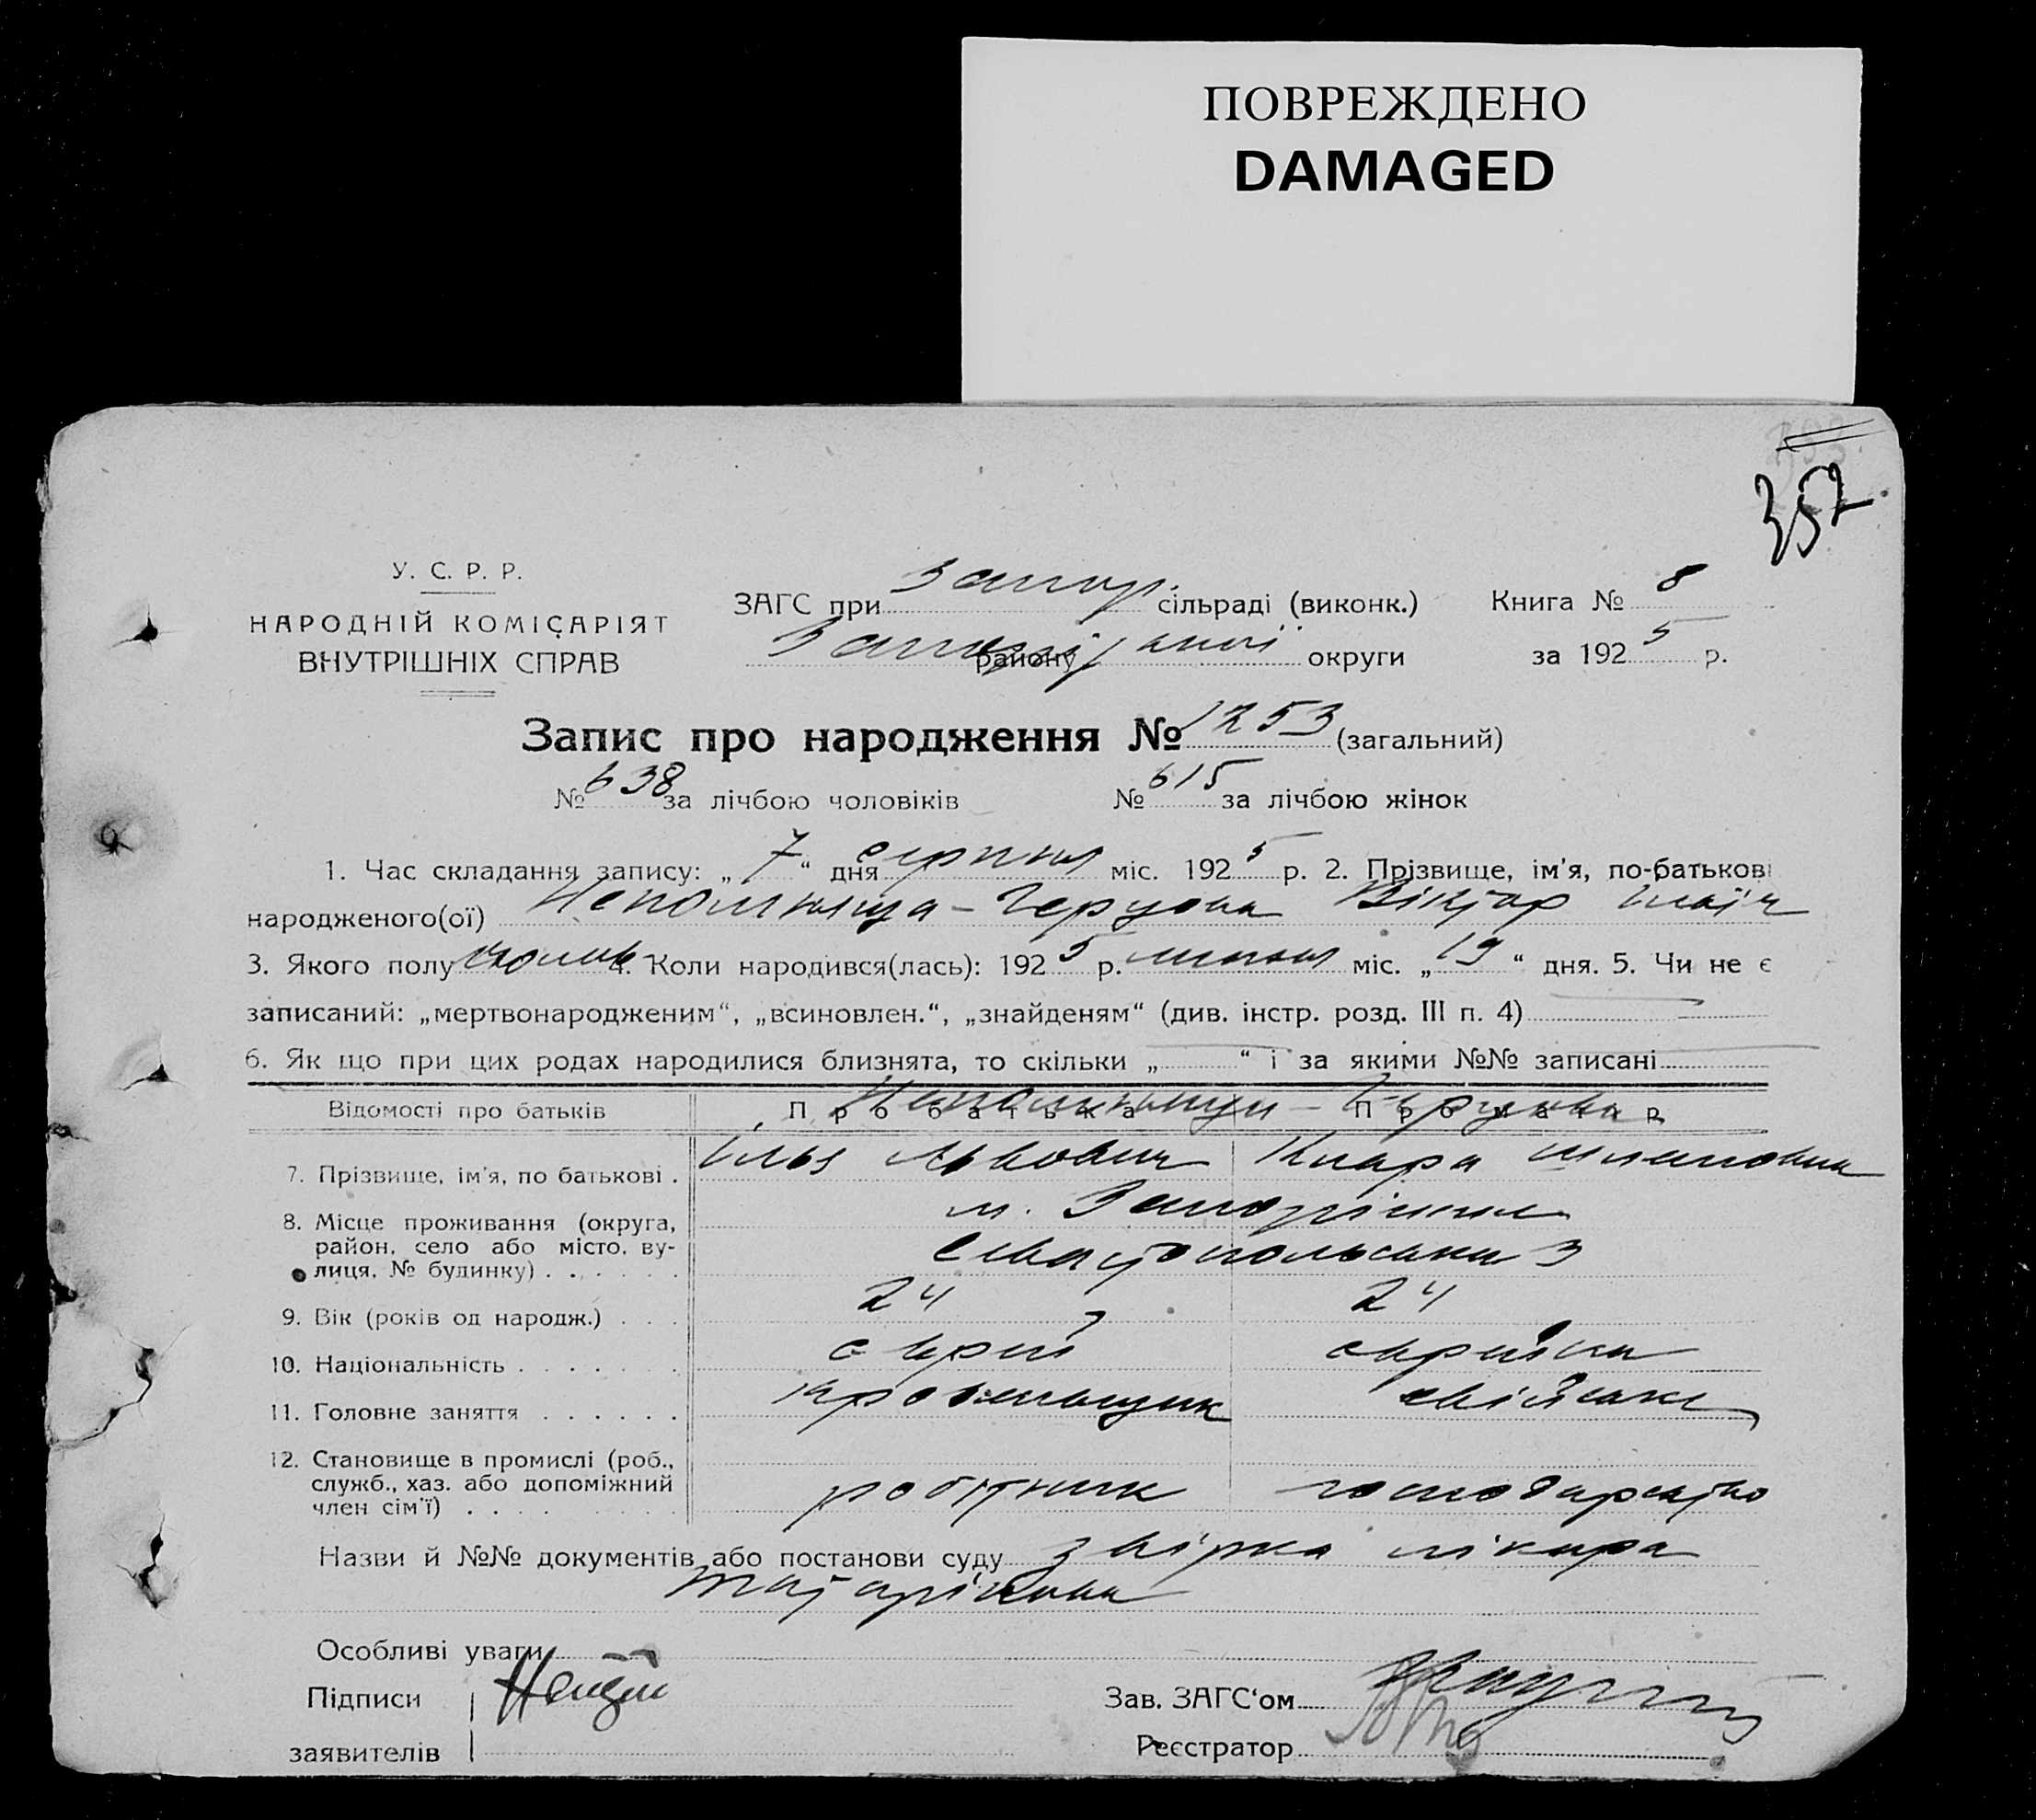 ПОВРЕЖДЕНО
DAMAGED
357
У. С. Р. Р.
НАРОДНІЙ КОМІСАРІЯТ
ВНУТРІШНІХ СПРАВ
ЗАГС при Запор. сільраді (виконк.) Книга № 8
району округи за 1925 р.
Запис про народження № 1253 (загальний)
№ 638 за лічбою чоловіків № 615 за лічбою жінок
1. Час складання запису: „7“ дня серпня міс. 1925 р. 2. Прізвище, ім'я, по-батькові
народженого(ої) Непомняща-Герцова Віктор Ілліч
3. Якого полу чолов. 4. Коли народився(лась): 1925 р. липня міс. „19“ дня. 5. Чи не є
записаний: „мертвонародженим“, „всиновлен.“, „знайденям“ (див. інстр. розд. III п. 4)
6. Як що при цих родах народилися близнята, то скільки „ “ і за якими №№ записані
Відомості про батьків Про батька Про матір
7. Прізвище, ім'я, по батькові . Ілья Львович Клара
8. Місце проживання (округа, м. Запоріжжя
район, село або місто, ву-
лиця, № будинку) . . . . . . Севастопольська 3
9. Вік (років од народж.) . . . 24 24
10. Національність . . . . . . . єврей єврейка
11. Головне заняття . . . . . . кровельщик хатнє
12. Становище в промислі (роб.,
служб., хаз. або допоміжний
член сім'ї) . . . . робітник господарство
Назви й №№ документів або постанови суду лікаря
Особливі уваги
Підписи
Зав. ЗАГС'ом
заявителів
Реєстратор